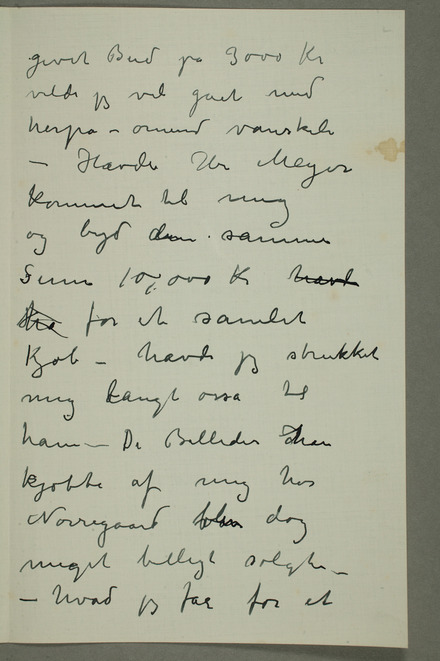 givet Bud på 3000 Kr
vilde jeg vel gået med
herpa – omend vanskeli
– Havde Hr Meyer
kommet til mig
og byd den samme
Sum 10,000 Kr havd
ha for et samlet
Kjøb – havde jeg strukket
mig langt osså til
ham – De Billeder han
kjøbte af mig hos
Nørregaard blev dog
meget billigt solgte –
– hvad jeg får for et